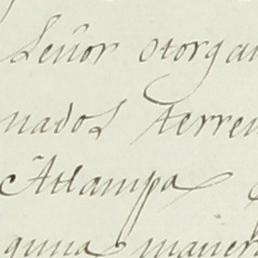 Señor otorga
nados terre
Atlampa
guna maner